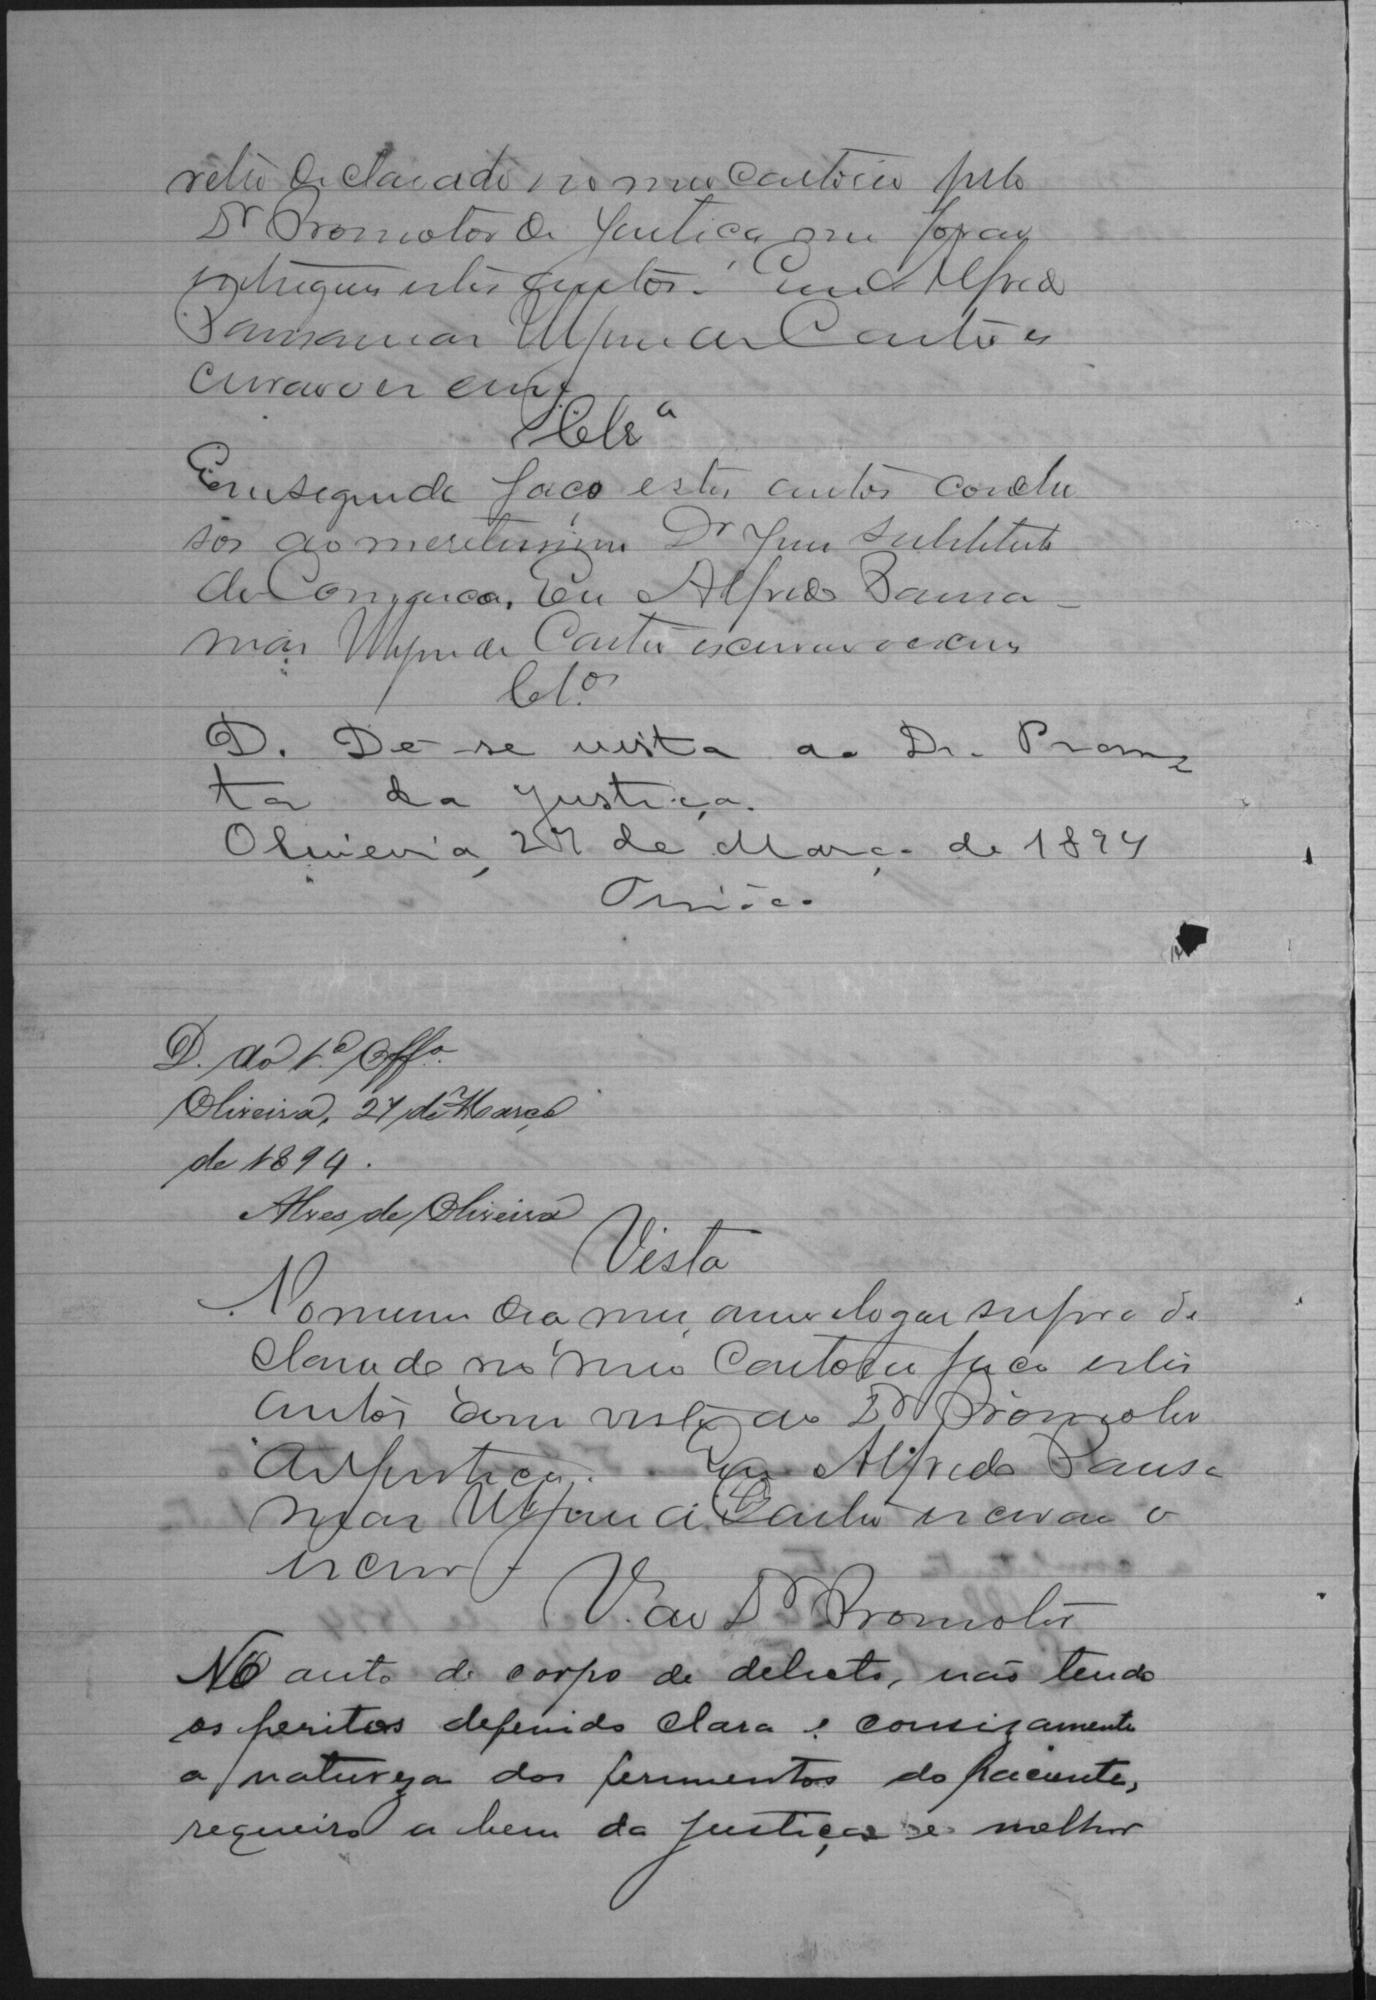 retro declarado no meu cartorio pelo
Dr Promotor de Justiça me forão
entregues estes autos. Eu Alfredo
de Castro es
crivão o escrevy
Clsª
Em seguida faço estes autos conclu
sos ao meretissimo Dr Juiz Substituto
da Comarca. Eu Alfredo
de Castro escrivão o escrevy
Cl.os
D. Dê-se vista ao Dr. Promo
tor da Justiça.
Oliveira, 27 de Março de 1894
D. ao 1.º Offº.
Oliveira, 27 de Março
de 1894.
Alves de Oliveira
Vista
No mesmo dia mez, anno e logar supra de
clarado no meu Cartorio faço estes
autos com vista ao Dr Promotor
da Justiça. Eu Alfredo
de Castro escrivão o
escrevy
V. ao Dr Promotor
No auto de corpo de delicto, não tendo
os peritos definido clara e concizamente
a natureza dos ferimentos do paciente,
requeiro a bem da justiça e melhor